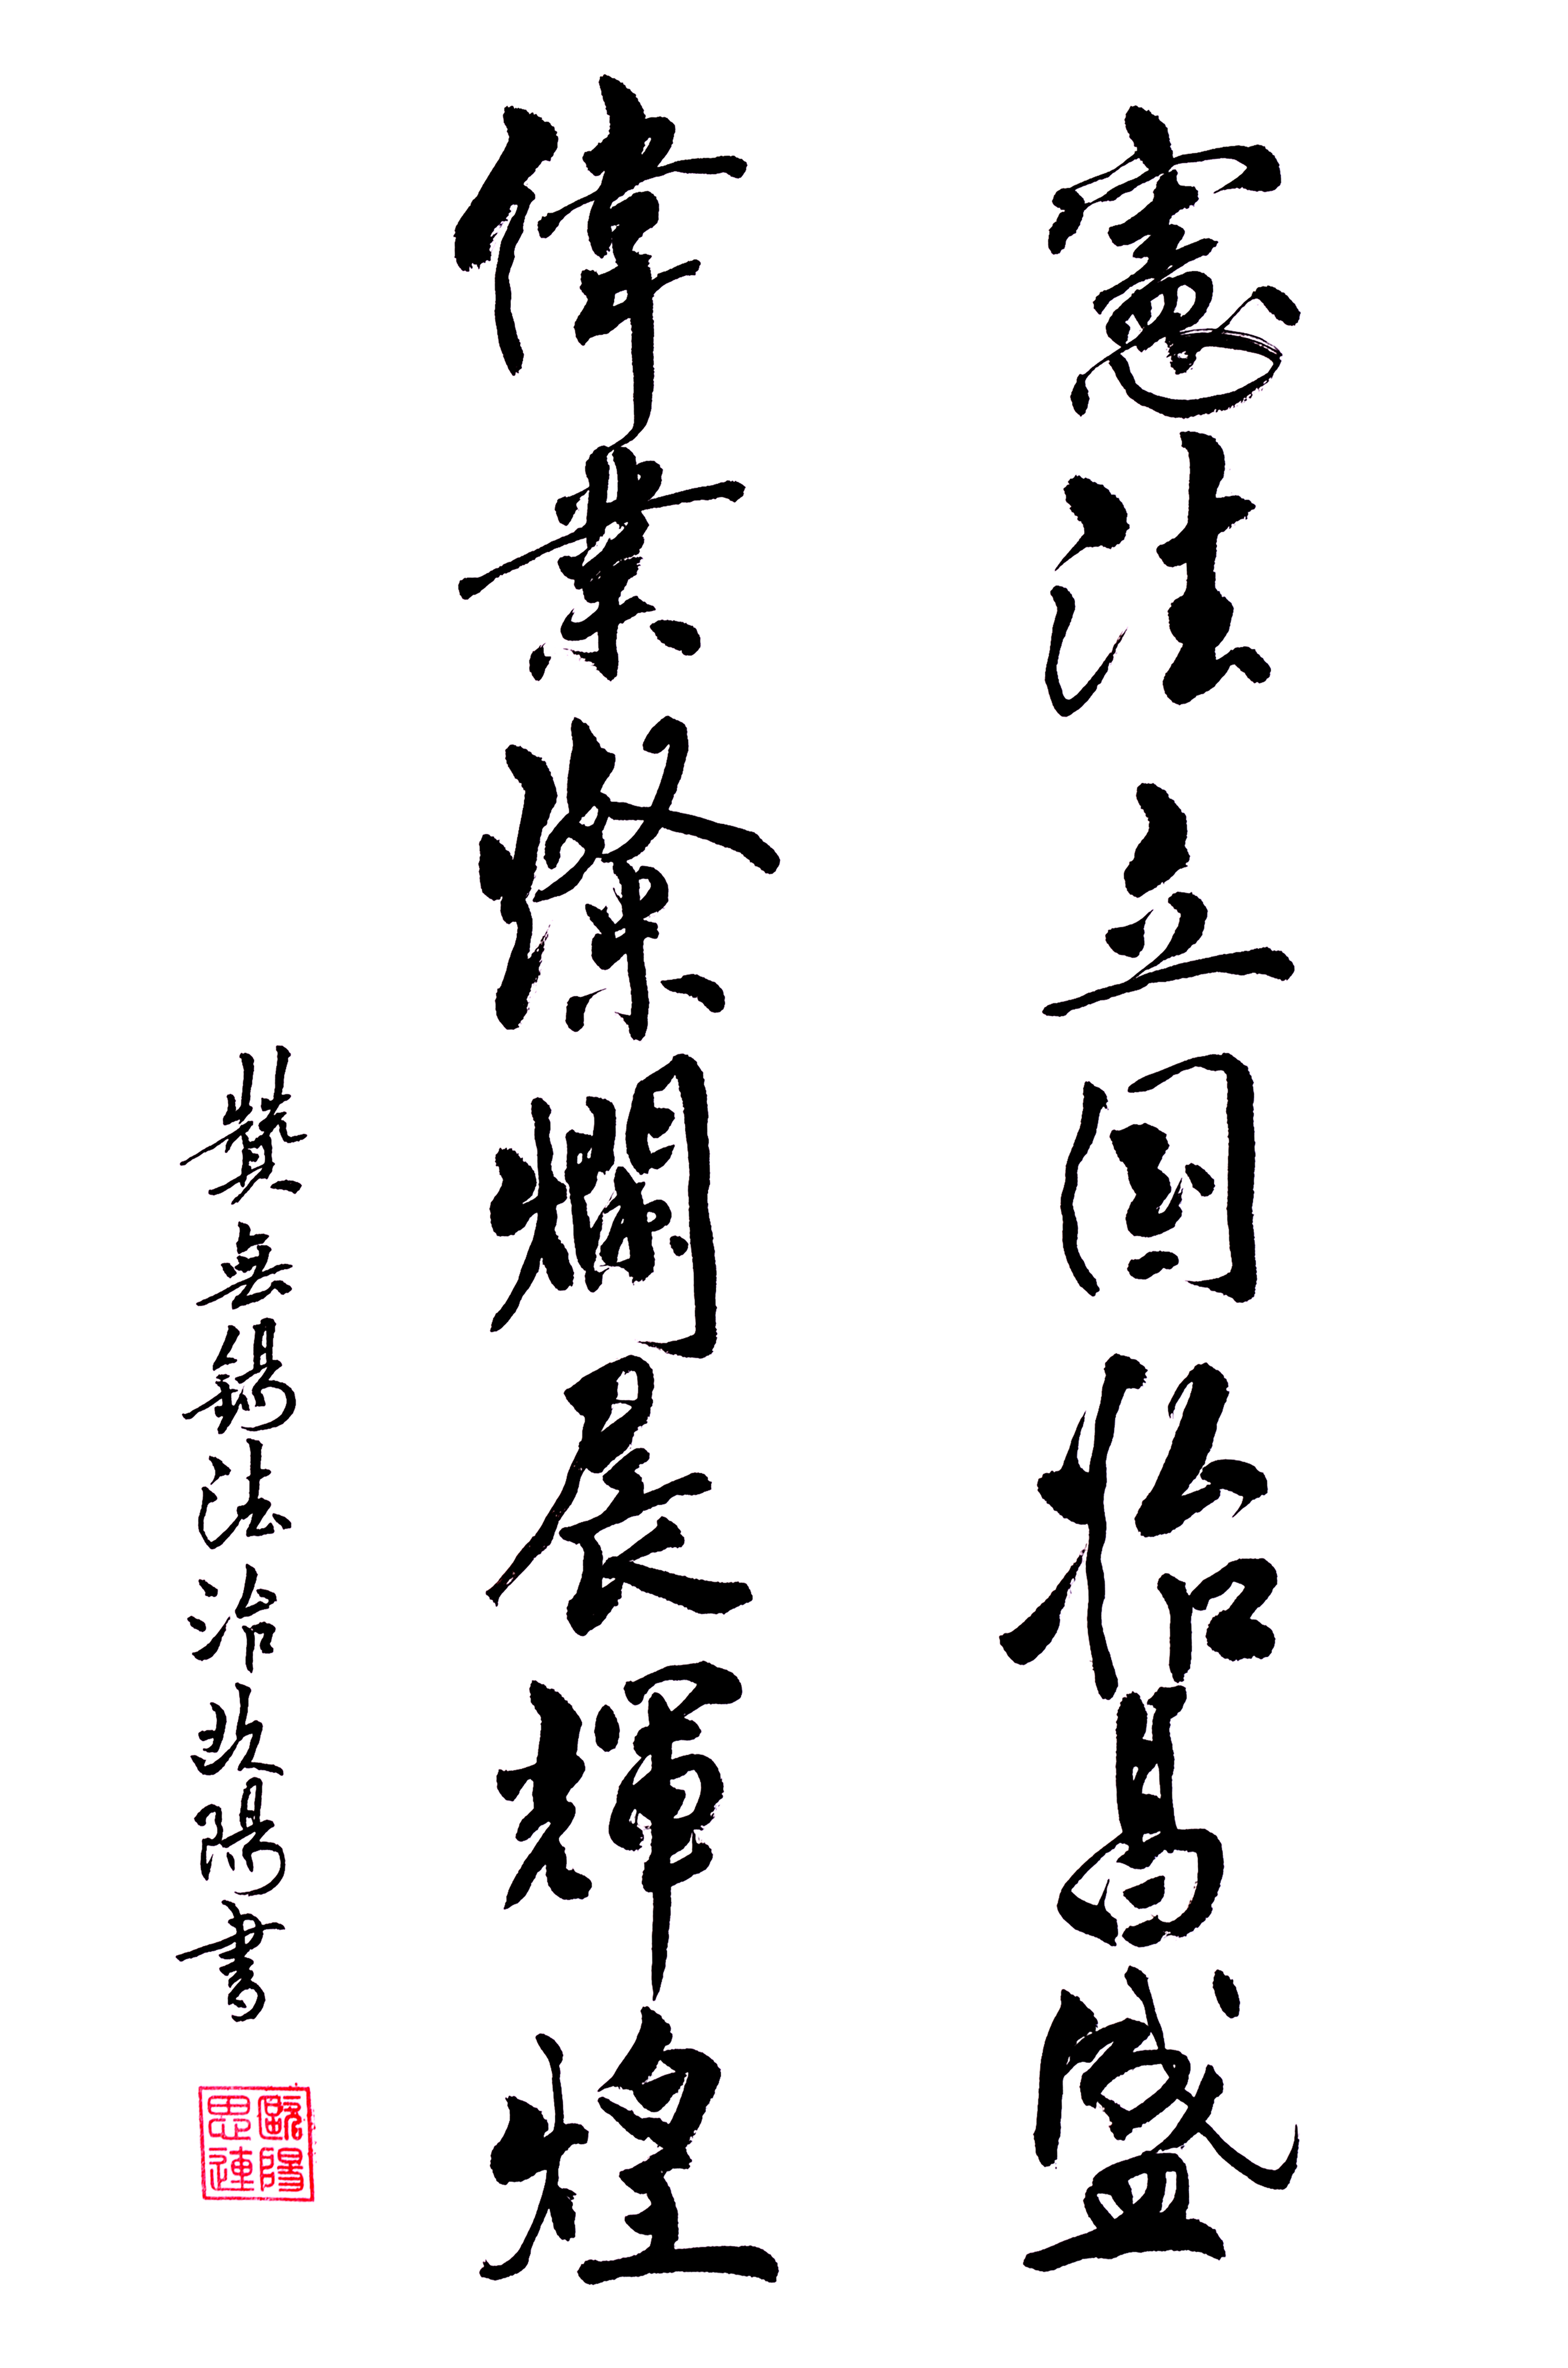 憲法立国盛
偉業燦爛展輝煌
贊無錫法治欧陽書
歐陽
思連